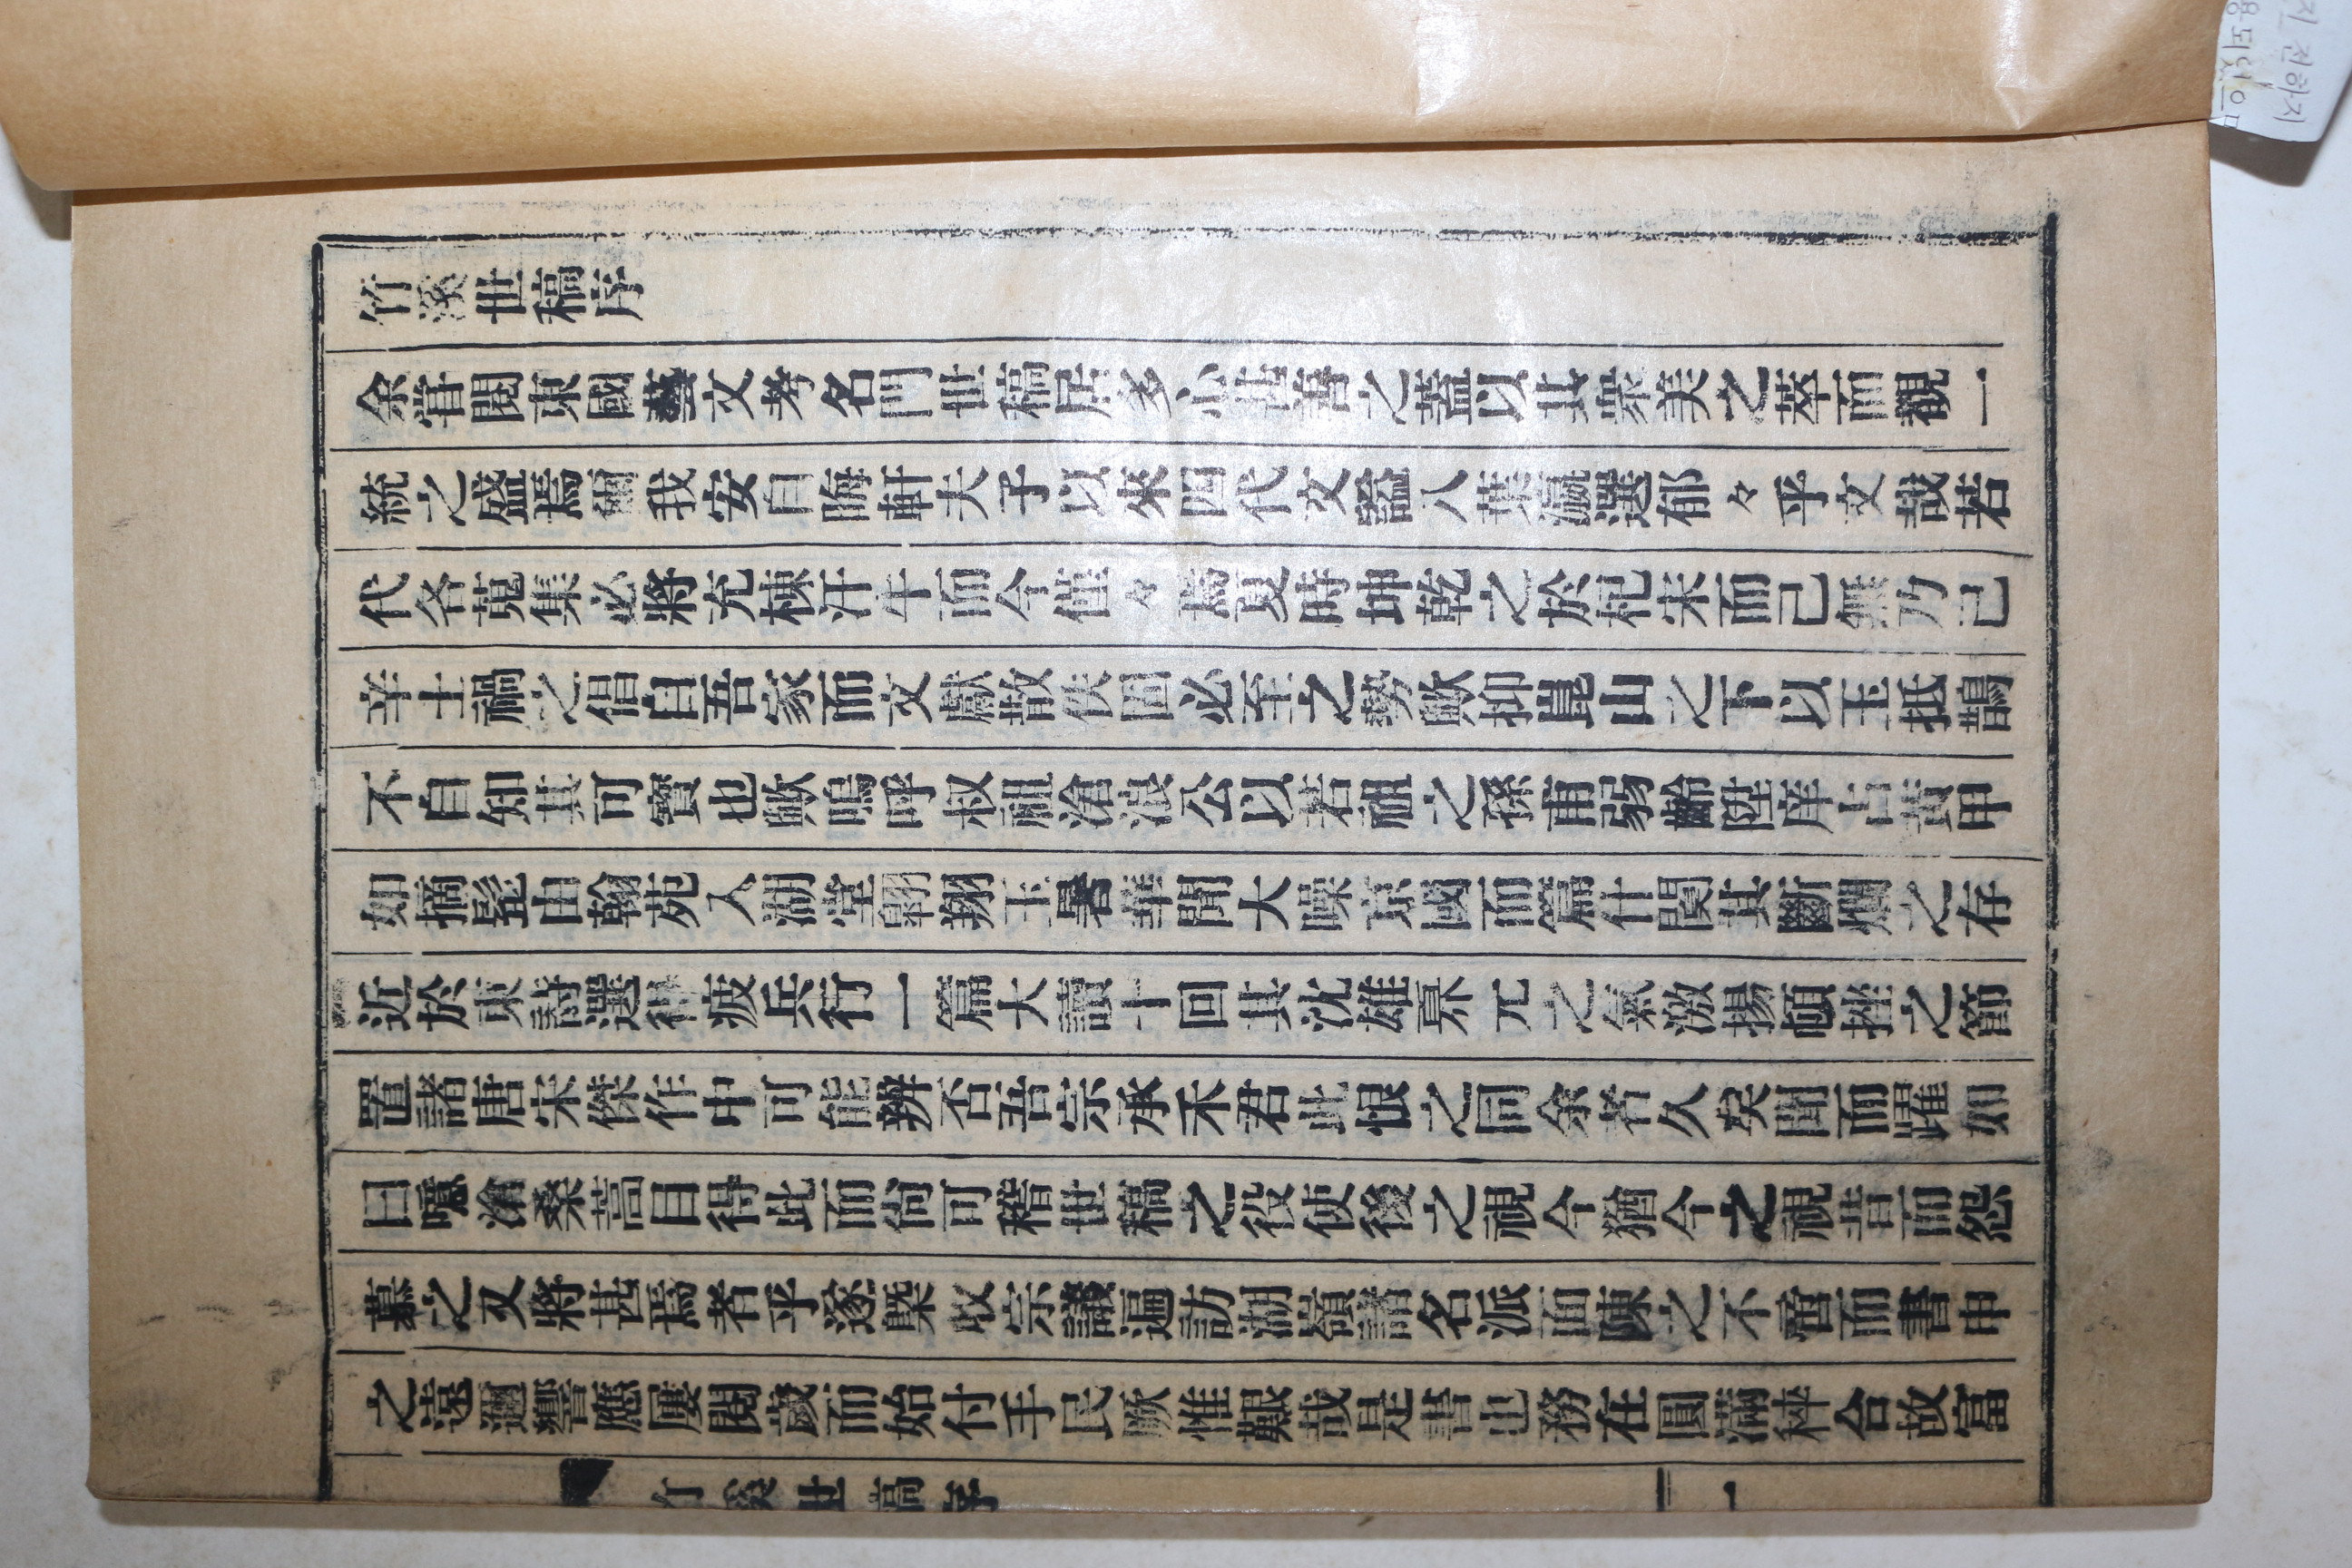 竹溪世稿序
余甞閱東國藝文考名門世稿居多心甚善之蓋以其衆美之萃而觀一
統之盛焉爾我安自晦軒夫子以來四代文諡八葉瀛選郁々乎文哉若
代各蒐集必將充棟汗牛而今僅々爲夏時坤乾之於杞宋而已無乃己
辛士禍之倡自吾家而文獻散佚固必至之勢歟抑崑山之下以玉抵鵲
不自知其可寶也歟嗚呼叔祖滄浪公以若祖之孫甫弱齡陞庠占嵬甲
如摘髭由翰苑入湖堂翶翔玉署華聞大噪京國而篇什閴其斷爛之存
近於東詩選得疲兵行一篇大讀十回其沈雄冞兀之氣激揚頓挫之節
置諸唐宋傑作中可能辨否吾宗承禾君此恨之同余者久矣聞而躍如
曰噫滄桑蒿目得此而尙可稽世稿之役使後之視今猶今之視昔而怨
慕之又將甚焉者乎遂槩收宗議逼訪湖嶺諸名派面陳之不啻而書申
之遠邇響應屢閱歲而始付手民厥惟艱哉是書也務在圓滿稡合故富
竹溪世稿序 一
전하지
되었으